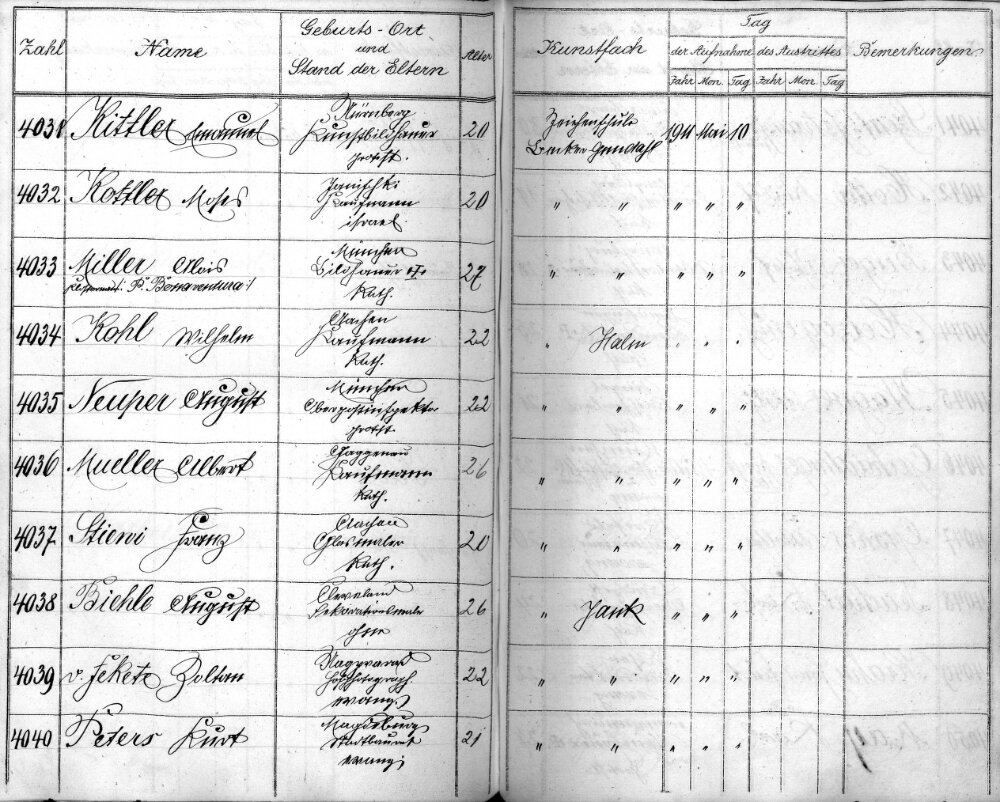 Zahl Name Geburts-Ort und Stand der Eltern Alter Kunstfach Tag der Aufnahme des Austrittes Bemerkungen
Jahr Mon. Tag Jahr Mon. Tag
4031 Kittler Emanuel Nürnberg 20 Zeichenschule 1911 Mai 10
Kunstbildhauer Becker Gundahl
protest.
4032 Kottler Moses 20 " " " " "
Kaufmann
israel.
4033 Miller Alois München 27 " " " " "
P. Bonaventura Bildhauer
kath.
4034 Kohl Wilhelm Aachen 22 " Halm " " "
Kaufmann
kath.
4035 Neuper August München 22 " " " " "
Oberpostinspektor
protest.
4036 Mueller Albert Gaggenau 26 " " " " "
Kaufmann
kath.
4037 Stiewi Franz Aachen 20 " " " " "
Glasmaler
kath.
4038 Biehle August Cleveland 26 " Jank " " "
Dekorationsmaler
ohne
4039 v. Fekete Zoltan Nagyvarad 22 " " " " "
Hofphotograph
evang.
4040 Peters Kurt Magdeburg 21 " " " " "
evang.